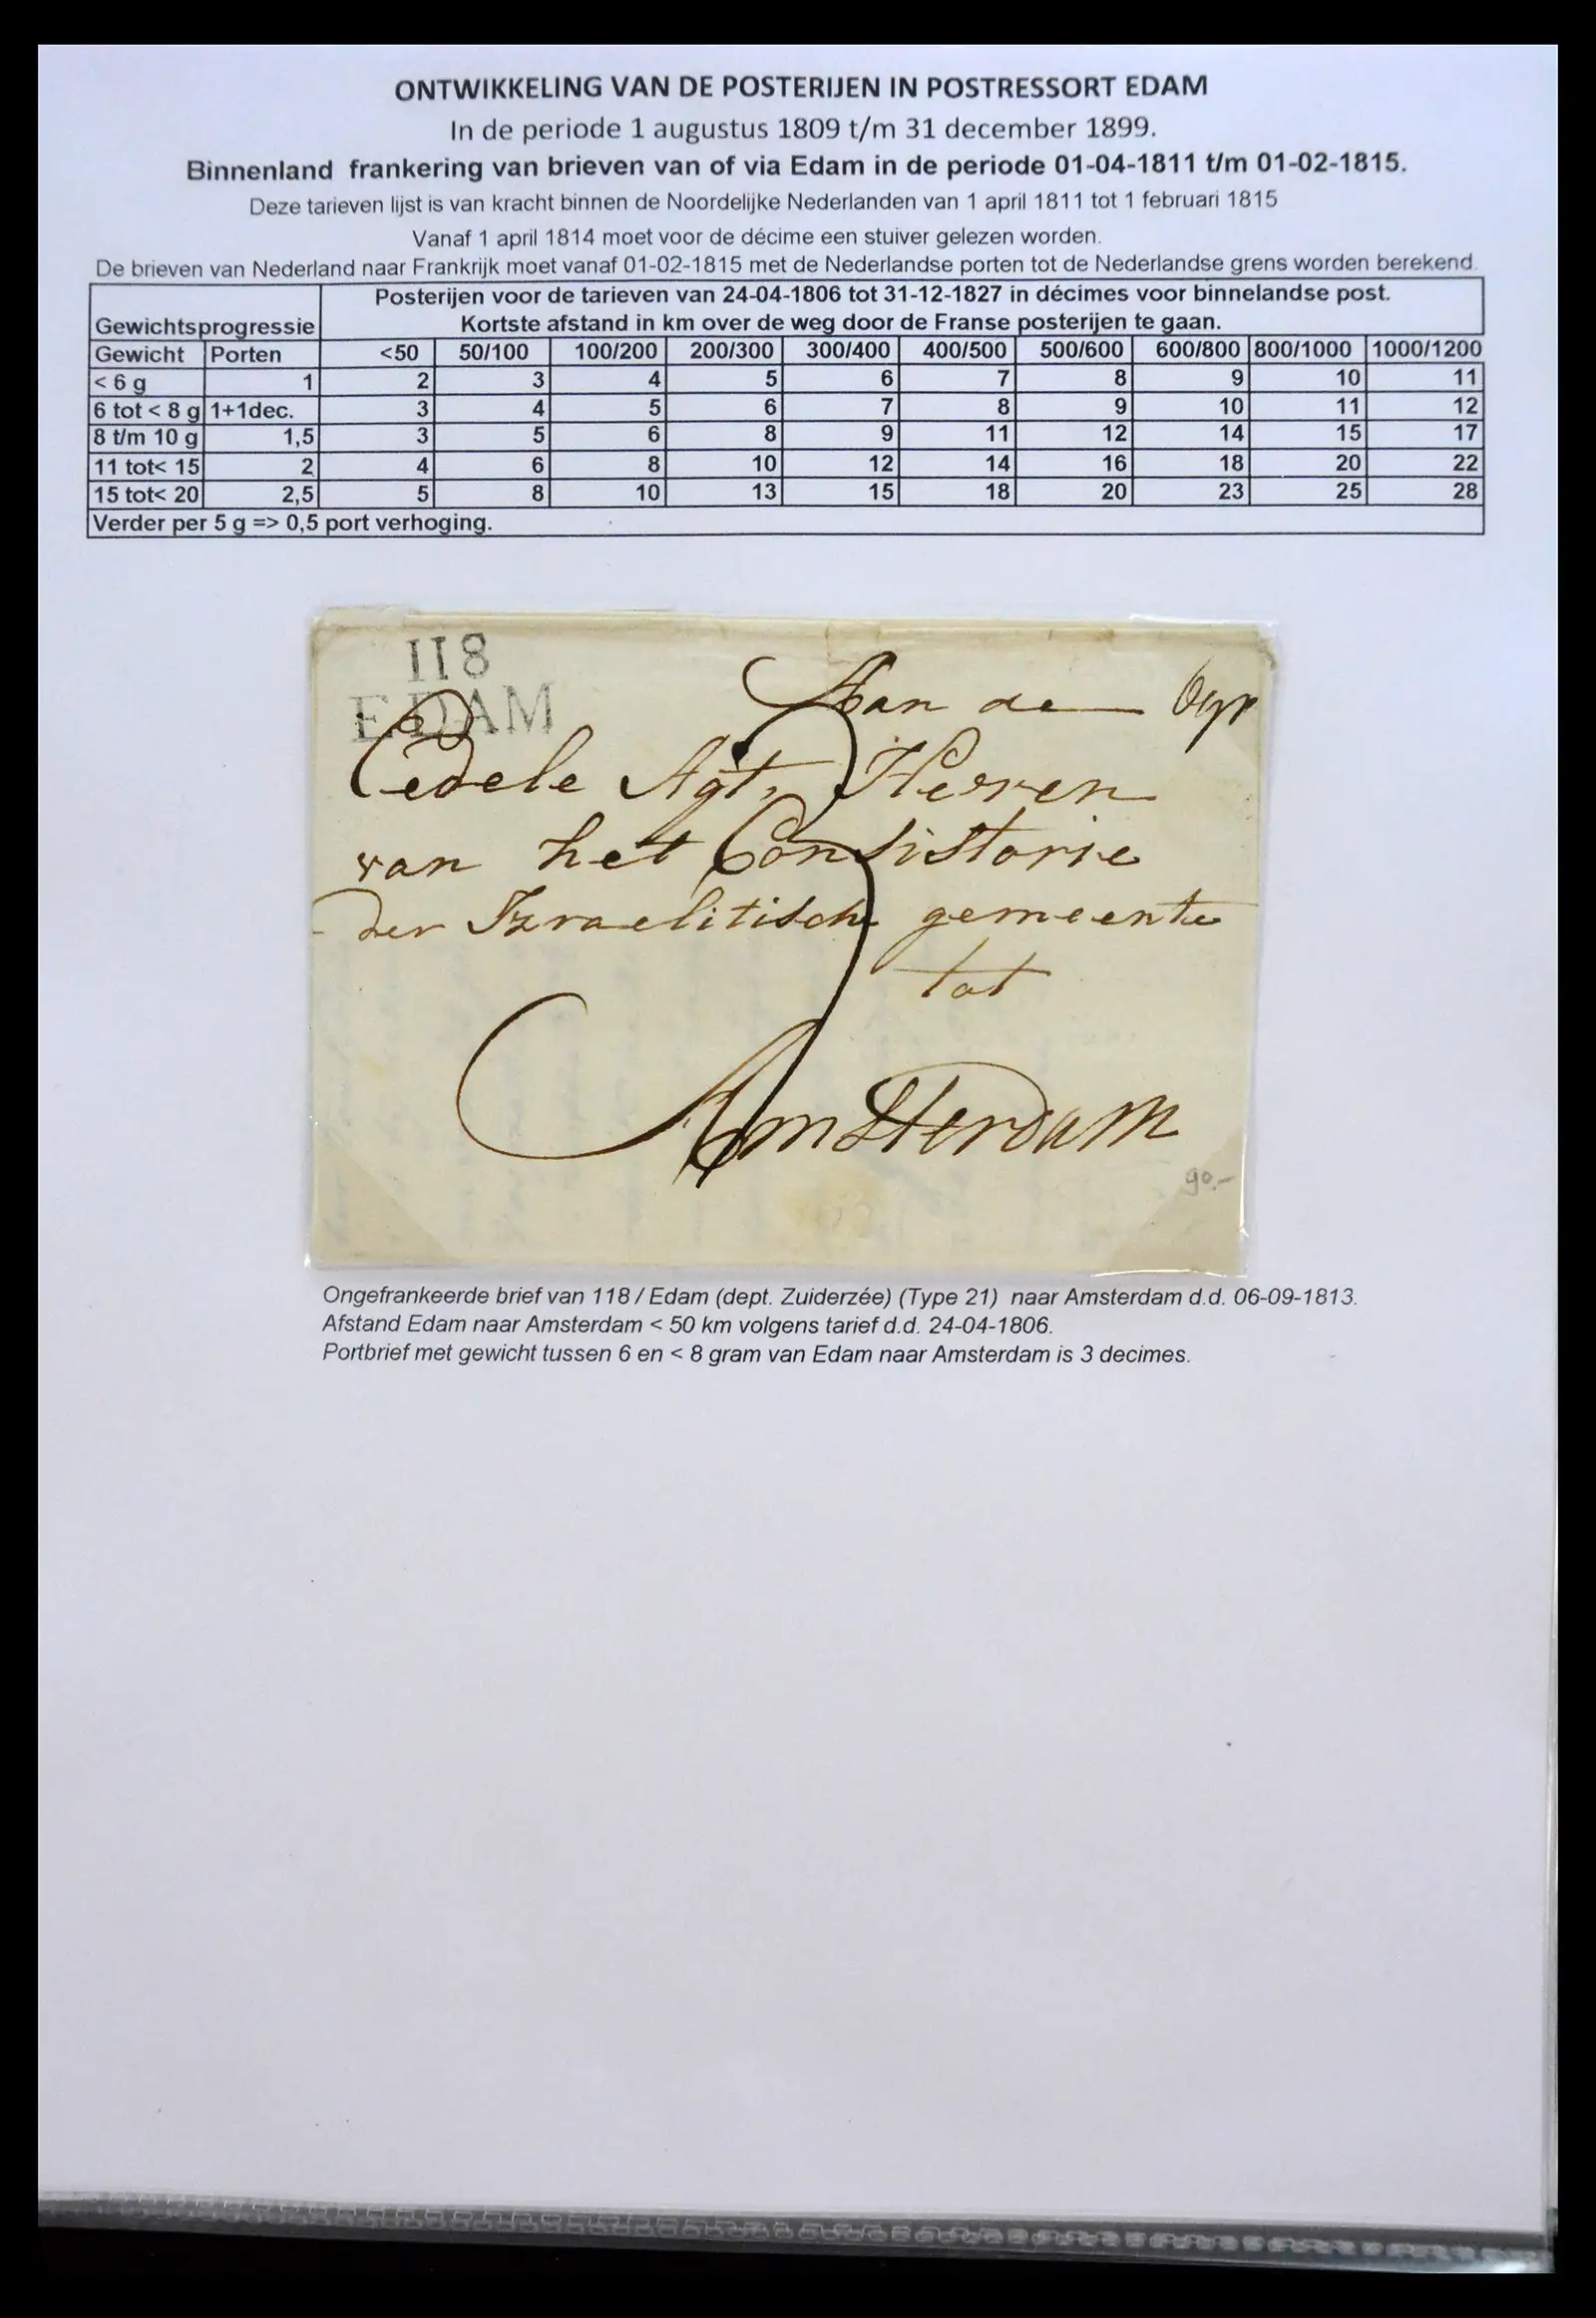 ONTWIKKELING VAN DE POSTERIJEN IN POSTRESSORT EDAM
In de periode 1 augustus 1809 t/m 31 december 1899.
Binnenland frankering van brieven van of via Edam in de periode 01-04-1811 t/m 01-02-1815.
Deze tarieven lijst is van kracht binnen de Noordelijke Nederlanden van 1 april 1811 tot 1 februari 1815
Vanaf 1 april 1814 moet voor de décime een stuiver gelezen worden.
De brieven van Nederland naar Frankrijk moet vanaf 01-02-1815 met de Nederlandse porten tot de Nederlandse grens worden berekend.
Posterijen voor de tarieven van 24-04-1806 tot 31-12-1827 in décimes voor binnelandse post.
Gewichtsprogressie Kortste afstand in km over de weg door de Franse posterijen te gaan.
Gewicht Porten <50 50/100 100/200 200/300 300/400 400/500 500/600 600/800 800/1000 1000/1200
< 6 g 1 2 3 4 5 6 7 8 9 10 11
6 tot < 8 g 1+1dec. 3 4 5 6 7 8 9 10 11 12
8 t/m 10 g 1,5 3 5 6 8 9 11 12 14 15 17
11 tot< 15 2 4 6 8 10 12 14 16 18 20 22
15 tot< 20 2,5 5 8 10 13 15 18 20 23 25 28
Verder per 5 g => 0,5 port verhoging.
118
EDAM
Aan de
Eedele Agt. Herren
van het Consistorie
der Izraelitisch gemeente
tot
Amsterdam
90.-
Ongefrankeerde brief van 118 / Edam (dept. Zuiderzée) (Type 21) naar Amsterdam d.d. 06-09-1813.
Afstand Edam naar Amsterdam < 50 km volgens tarief d.d. 24-04-1806.
Portbrief met gewicht tussen 6 en < 8 gram van Edam naar Amsterdam is 3 decimes.